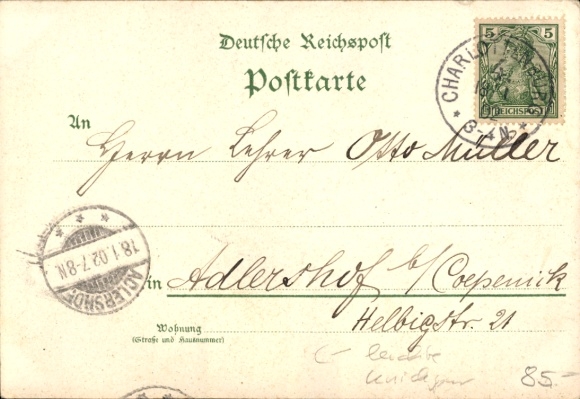 Deutsche Reichspost
Postkarte
5 5
REICHSPOST
CHARLOTTENBURG
18 1
3-4 N.
An
Herrn Lehrer Otto Müller
ADLERSHOF
18.1.02.7-8N.
in Adlershof b/Coepenick
Helbigstr. 21
Wohnung
(Straße und Hausnummer)
leichte
85.-